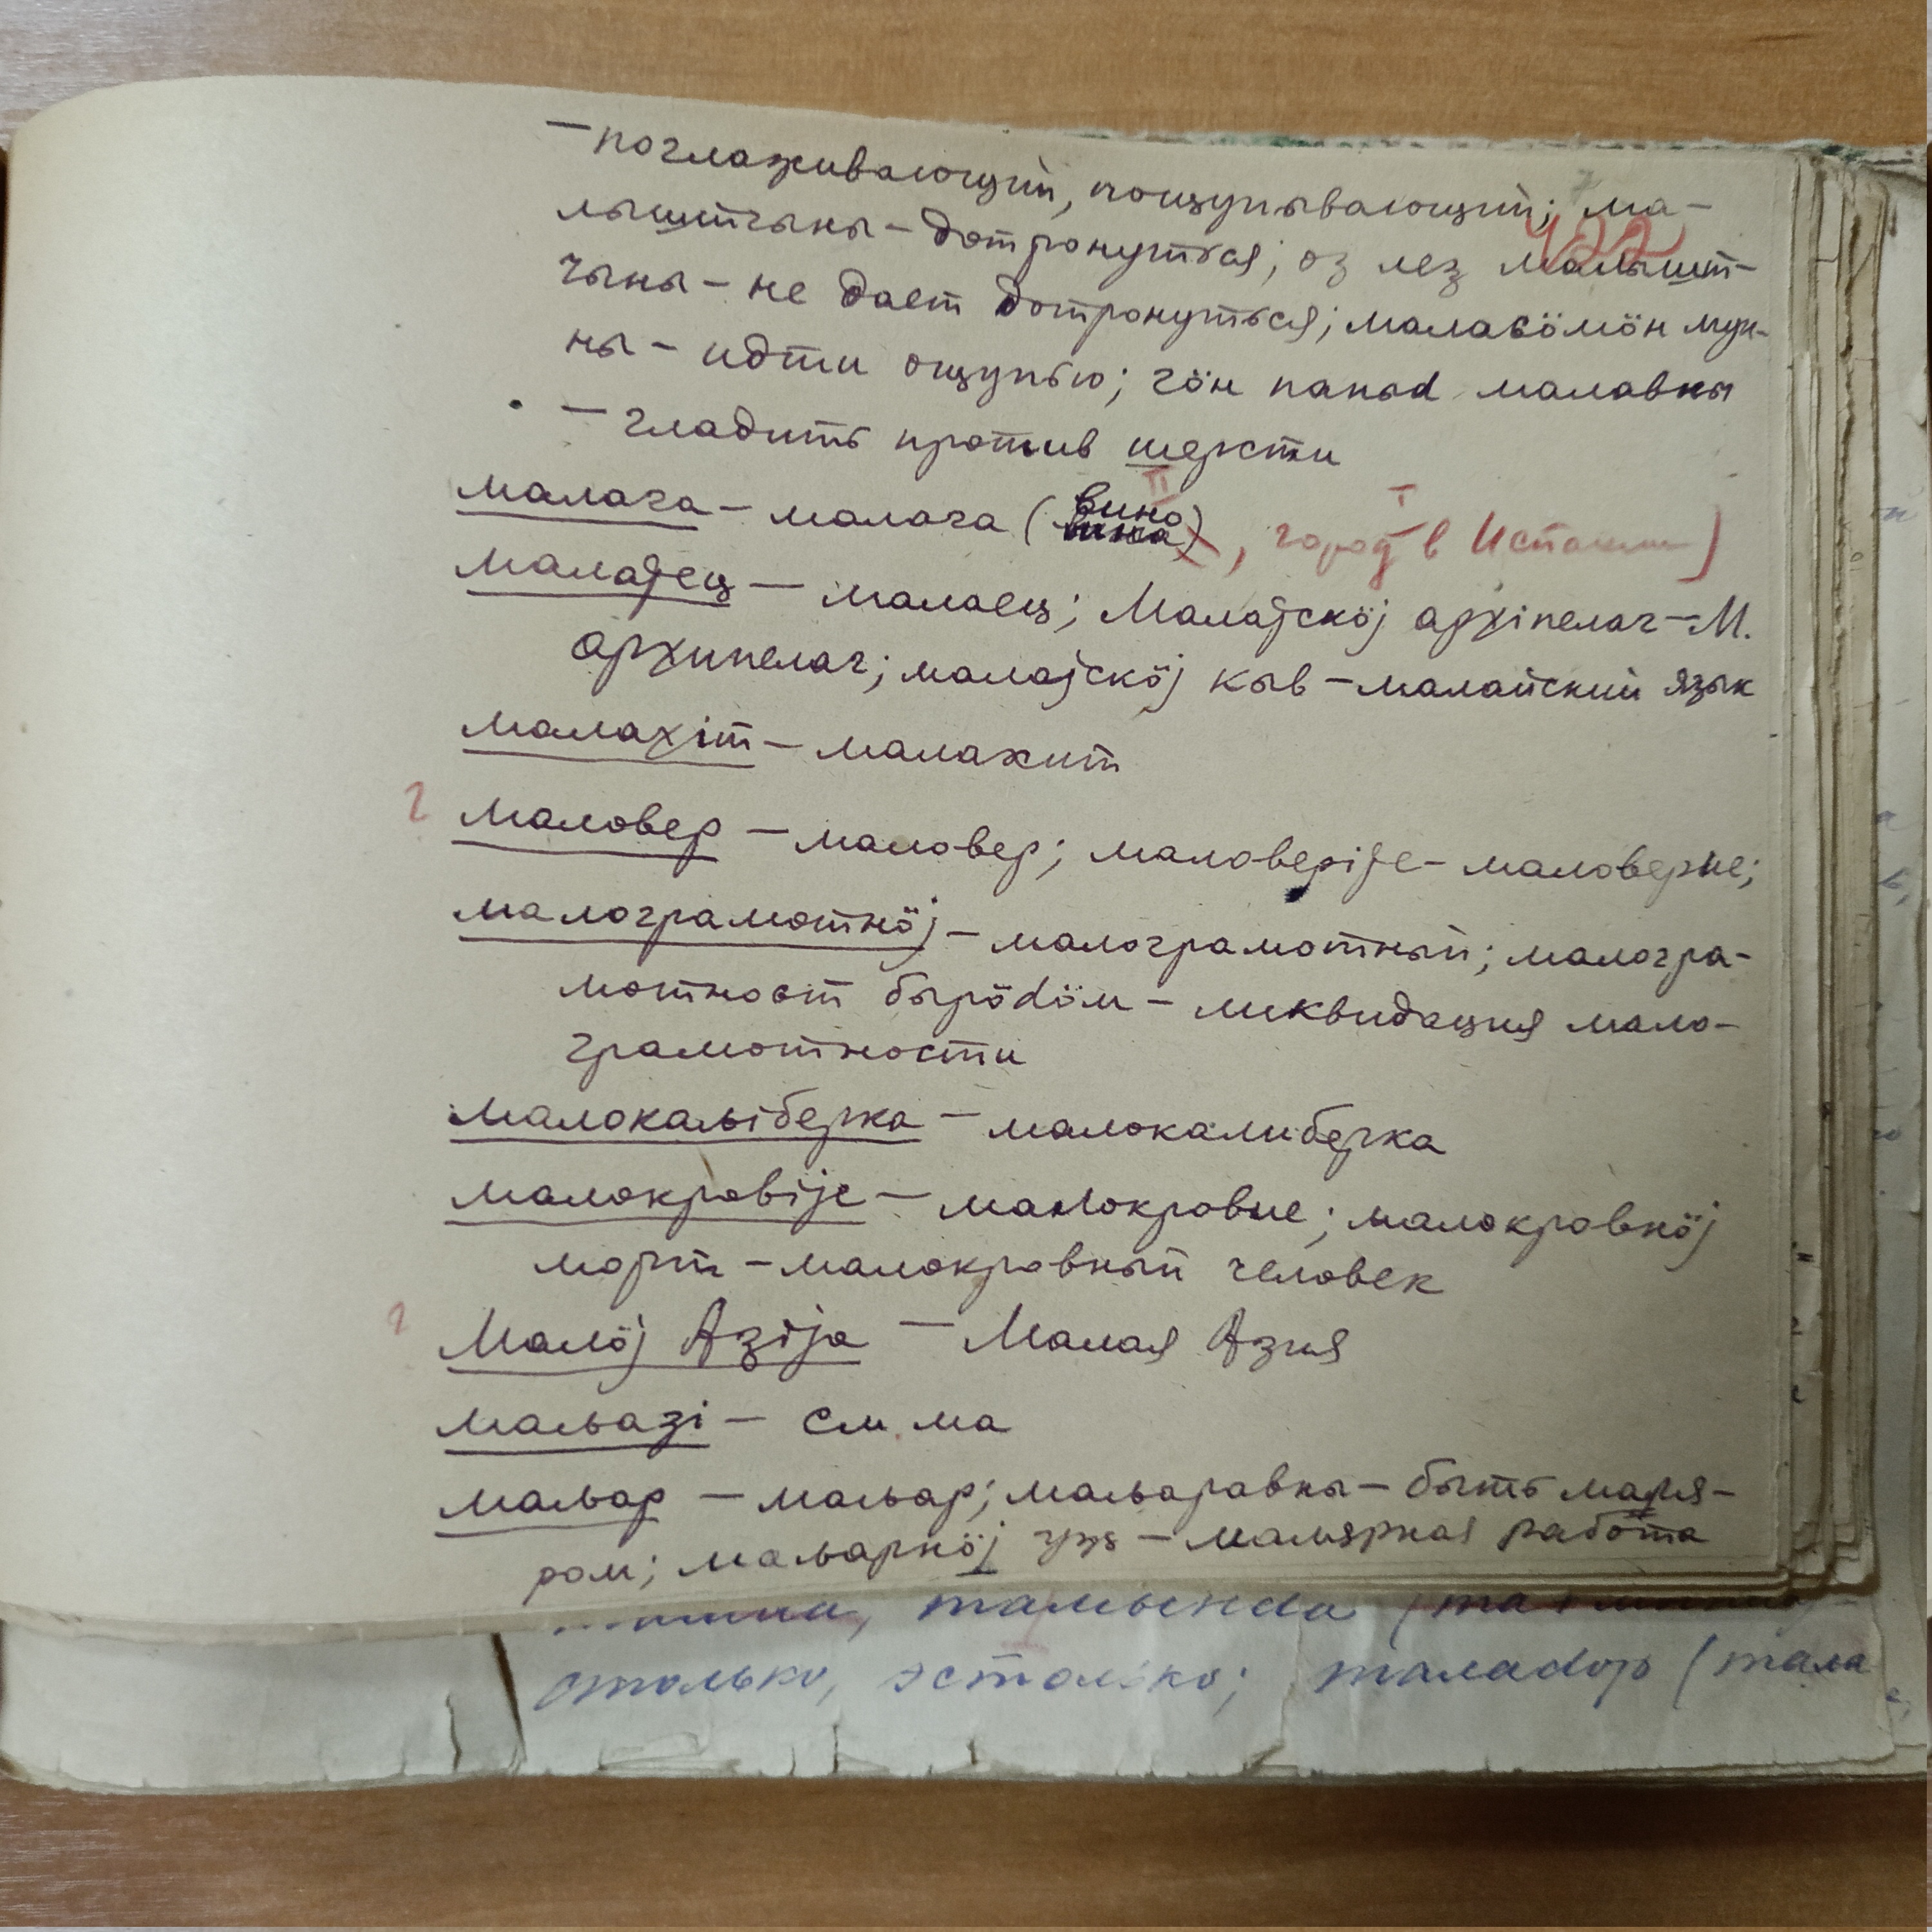 — поглаживающий, пощупывающий; ма-
422
лыштчыны — дотронуться; оз лез малышт-
чыны — не дает дотронуться; малавöмöн мун-
ны — идти ощупью; гöн паныd малавны
— гладить против шерсти
малага — малага (вино), город в Испании)
малајец — малаец; Малајскöј архіпелаг — М.
архипелаг; малајскöј кыв — малайский язык
малахіт — малахит
? маловер — маловер; маловеріје — маловерие;
малограмотнöј — малограмотный; малогра-
мотност бырödöм — ликвидация мало-
грамотности
малокаԉіберка — малокалиберка
малокровіје — малокровие; малокровнöј
морт — малокровный человек
? Малöј Азіја — Малая Азия
маԉазі — см. ма
маԉар — маԉар; маԉаравны — быть маля-
ром; маԉарнöј уҗ — малярная работа
тамында
столько, эстолько; таладор (тала